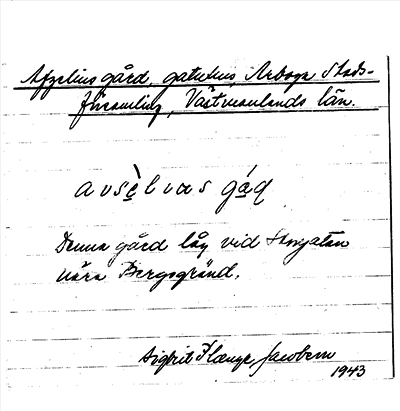 Afzelius gård, gatuhus, Arboga Stads-
församling, Västmanlands län.
avsèlvas gá̱q
Denna gård låg vid Storgatan
nära Bergsgränd.
Sigfrid Jacobson
1943